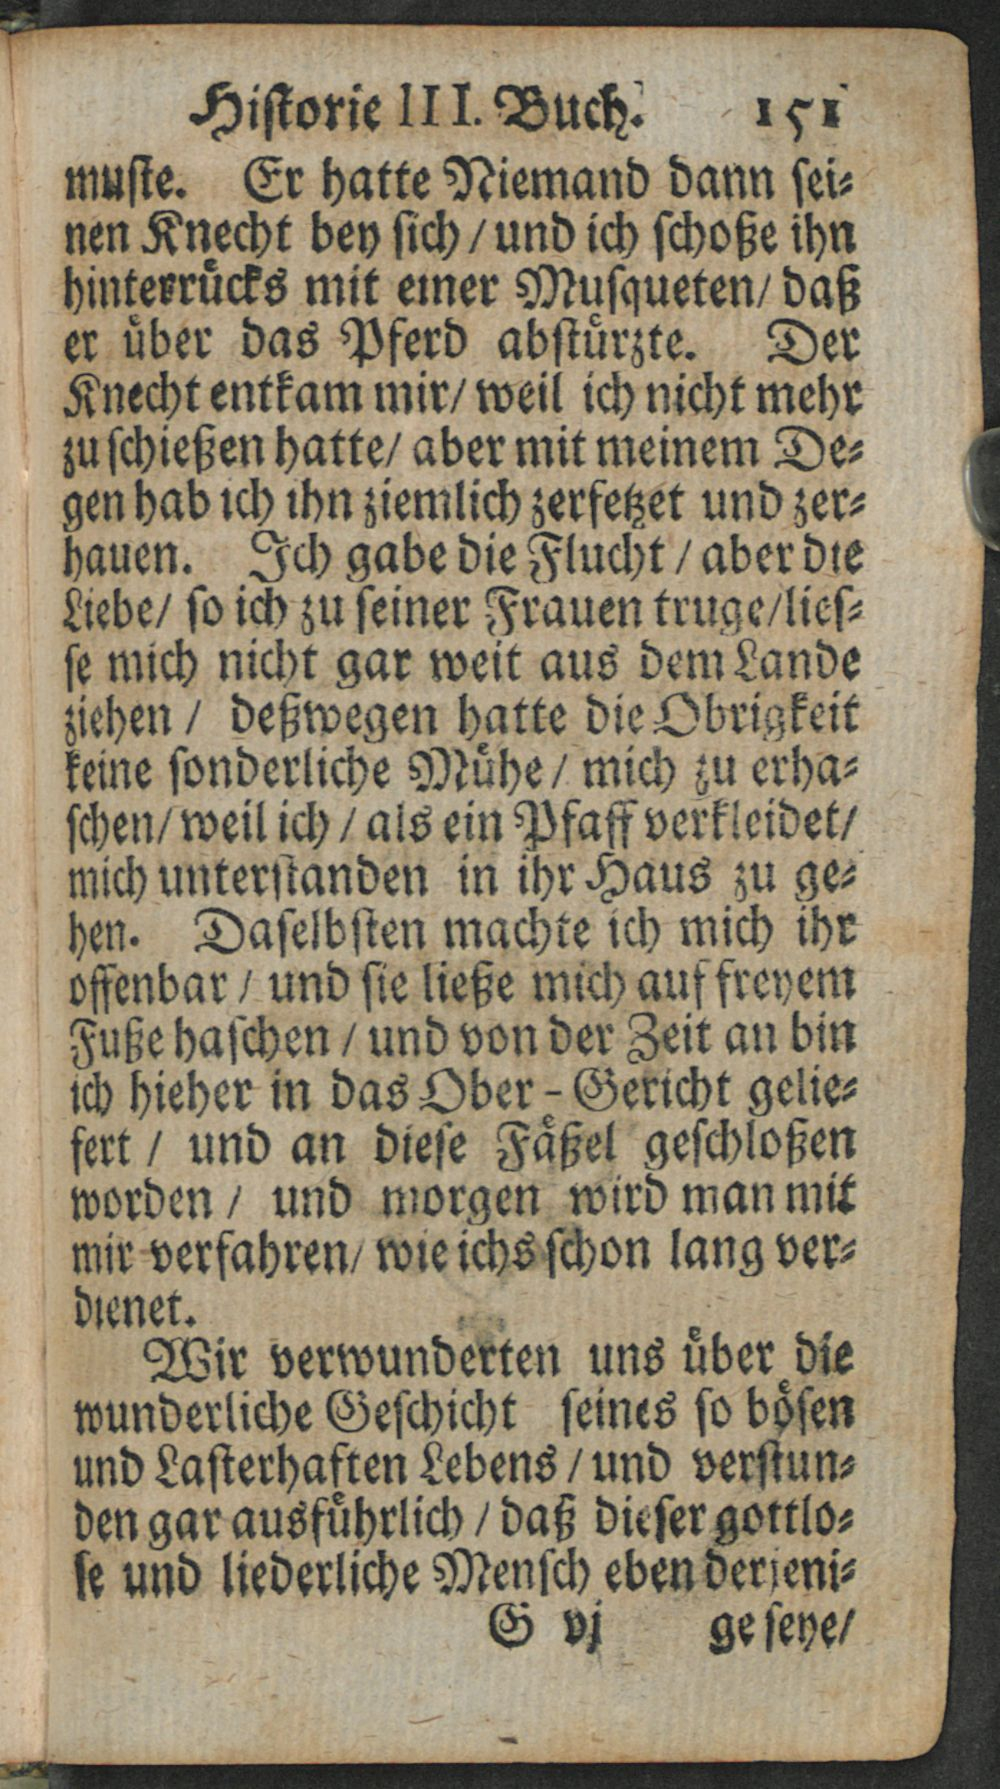 Historie III. Buch. 151
muste. Er hatte Niemand dann sei⸗
nen Knecht bey sich / und ich schoße ihn
hinterrücks mit einer Musqueten / daß
er über das Pferd abstürzte. Der
Knecht entkam mir / weil ich nicht mehr
zu schießen hatte / aber mit meinem De⸗
gen hab ich ihn ziemlich zerfetzet und zer⸗
hauen. Ich gabe die Flucht / aber die
Liebe / so ich zu seiner Frauen truge / lies⸗
se mich nicht gar weit aus dem Lande
ziehen / deßwegen hatte die Obrigkeit
keine sonderliche Mühe / mich zu erha⸗
schen / weil ich / als ein Pfaff verkleidet /
mich unterstanden in ihr Haus zu ge⸗
hen. Daselbsten machte ich mich ihr
offenbar / und sie ließe mich auf freyem
Fuße haschen / und von der Zeit an bin
ich hieher in das Ober-Gericht gelie⸗
fert / und an diese Fäßel geschloßen
worden / und morgen wird man mit
mir verfahren / wie ichs schon lang ver⸗
dienet.
Wir verwunderten uns über die
wunderliche Geschicht seines so bösen
und Lasterhaften Lebens / und verstun⸗
den gar ausführlich / daß dieser gottlo⸗
se und liederliche Mensch eben derjeni⸗
G vj ge seye /